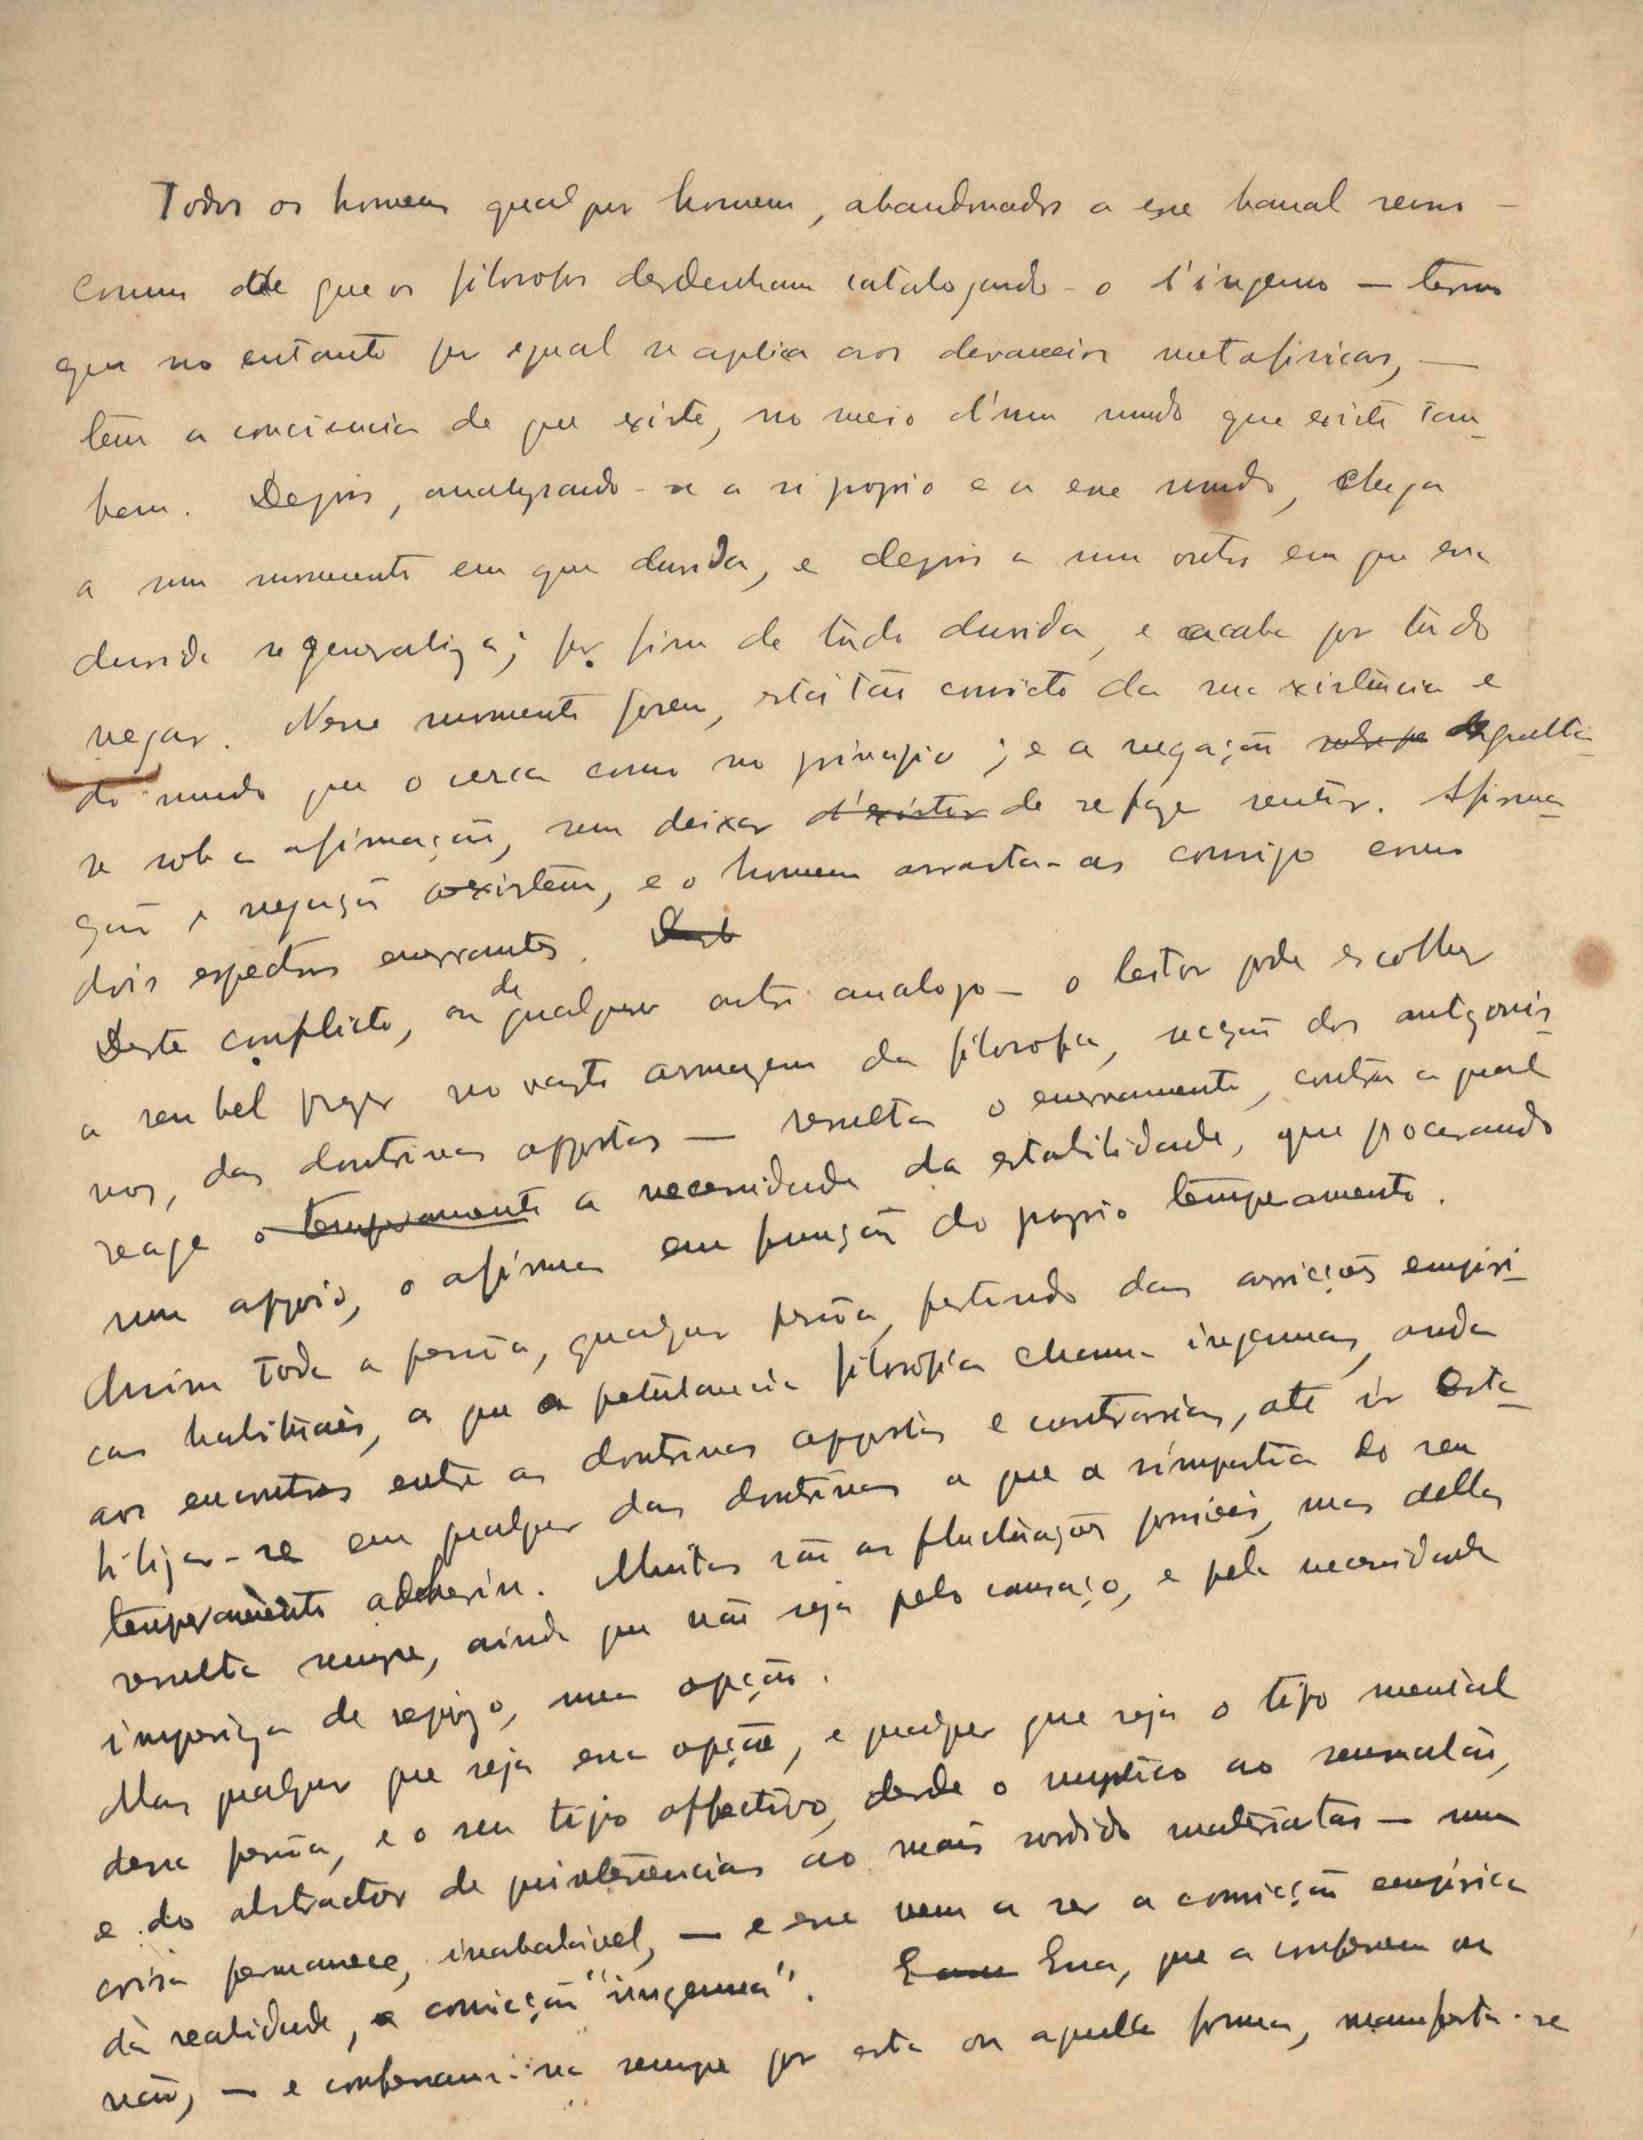 Todos os homens qualquer homem, abandonados a esse banal senso
comum de que os filosofos desdenham catalogando-o d'ingenuo — termo
que no entanto por egual se aplica aos devaneios metafisicos, —
tem a consciencia de que existe, no meio d'um mundo que existe tam-
bem. Depois, analysando-se a si proprio e a esse mundo, chega
a um momento em que duvida, e depois a um outro em que essa
duvida se generaliza; por fim de tudo duvida, e acaba por tudo
negar. Nesse momento porem, está tão convicto da sua existencia e
do mundo que o cerca como no principio; e a negação sepulta-
se sob a afirmação, sem deixar d'existir de se fazer sentir. Afirma-
ção e negação coexistem, e o homem arrasta-as comsigo como
dois espectros enervantes. Dest
Deste conflicto, ou de qualquer outro analogo — o leitor pode escolher
a seu bel prazer no vasto armazem da filosofia, secção dos antagonis-
mos, das doutrinas oppostas — resulta o enervamento, contra a qual
reage o temperamento a necessidade da estabilidade, que procurando
um appoio, o afirma em função do proprio temperamento.
Assim toda a pessoa, qualquer pessoa, partindo das convicções empiri-
cas habituaes, a que a petulancia filosofica chama ingenuas, anda
aos encontros entre as doutrinas oppostas e contrarias, até ir esta-
bilizar-se em qualquer das doutrinas a que a simpatia do seu
temperamento adherir. Muitas são as fluctuações possiveis, mas dellas
resulta sempre, ainda que não seja pelo cansaço, e pela necessidade
imperiosa de repouso, uma opção.
Mas qualquer que seja essa opção, e qualquer que seja o tipo mental
dessa pessoa, e o seu tipo affectivo, desde o mystico ao sensualão,
e do abstractor de quintessencias ao mais sordido materialista — uma
coisa permanece, inabalavel, — e esse vem a ser a convicção empirica
da realidade, a convicção "ingenua". Essa, que a confessem ou
não, — e confessam-na sempre por esta ou aquella forma, manifesta-se